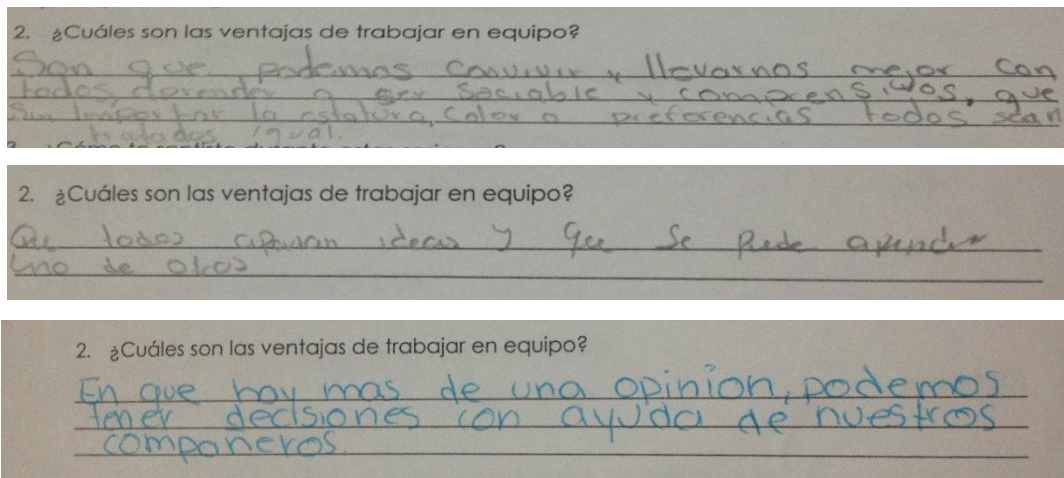 2. ¿Cuáles son las ventajas de trabajar en equipo?
Son que podemos convivir y llevarnos mejor con
todos, a ser sociable y comprensivos, que
sin importar la estatura, color o preferencias todos sean
tratados igual.
2. ¿Cuáles son las ventajas de trabajar en equipo?
Que todos ideas y que se puede aprender
uno de otros
2. ¿Cuáles son las ventajas de trabajar en equipo?
En que hay mas de una opinion, podemos
tener decisiones con ayuda de nuestros
compañeros.